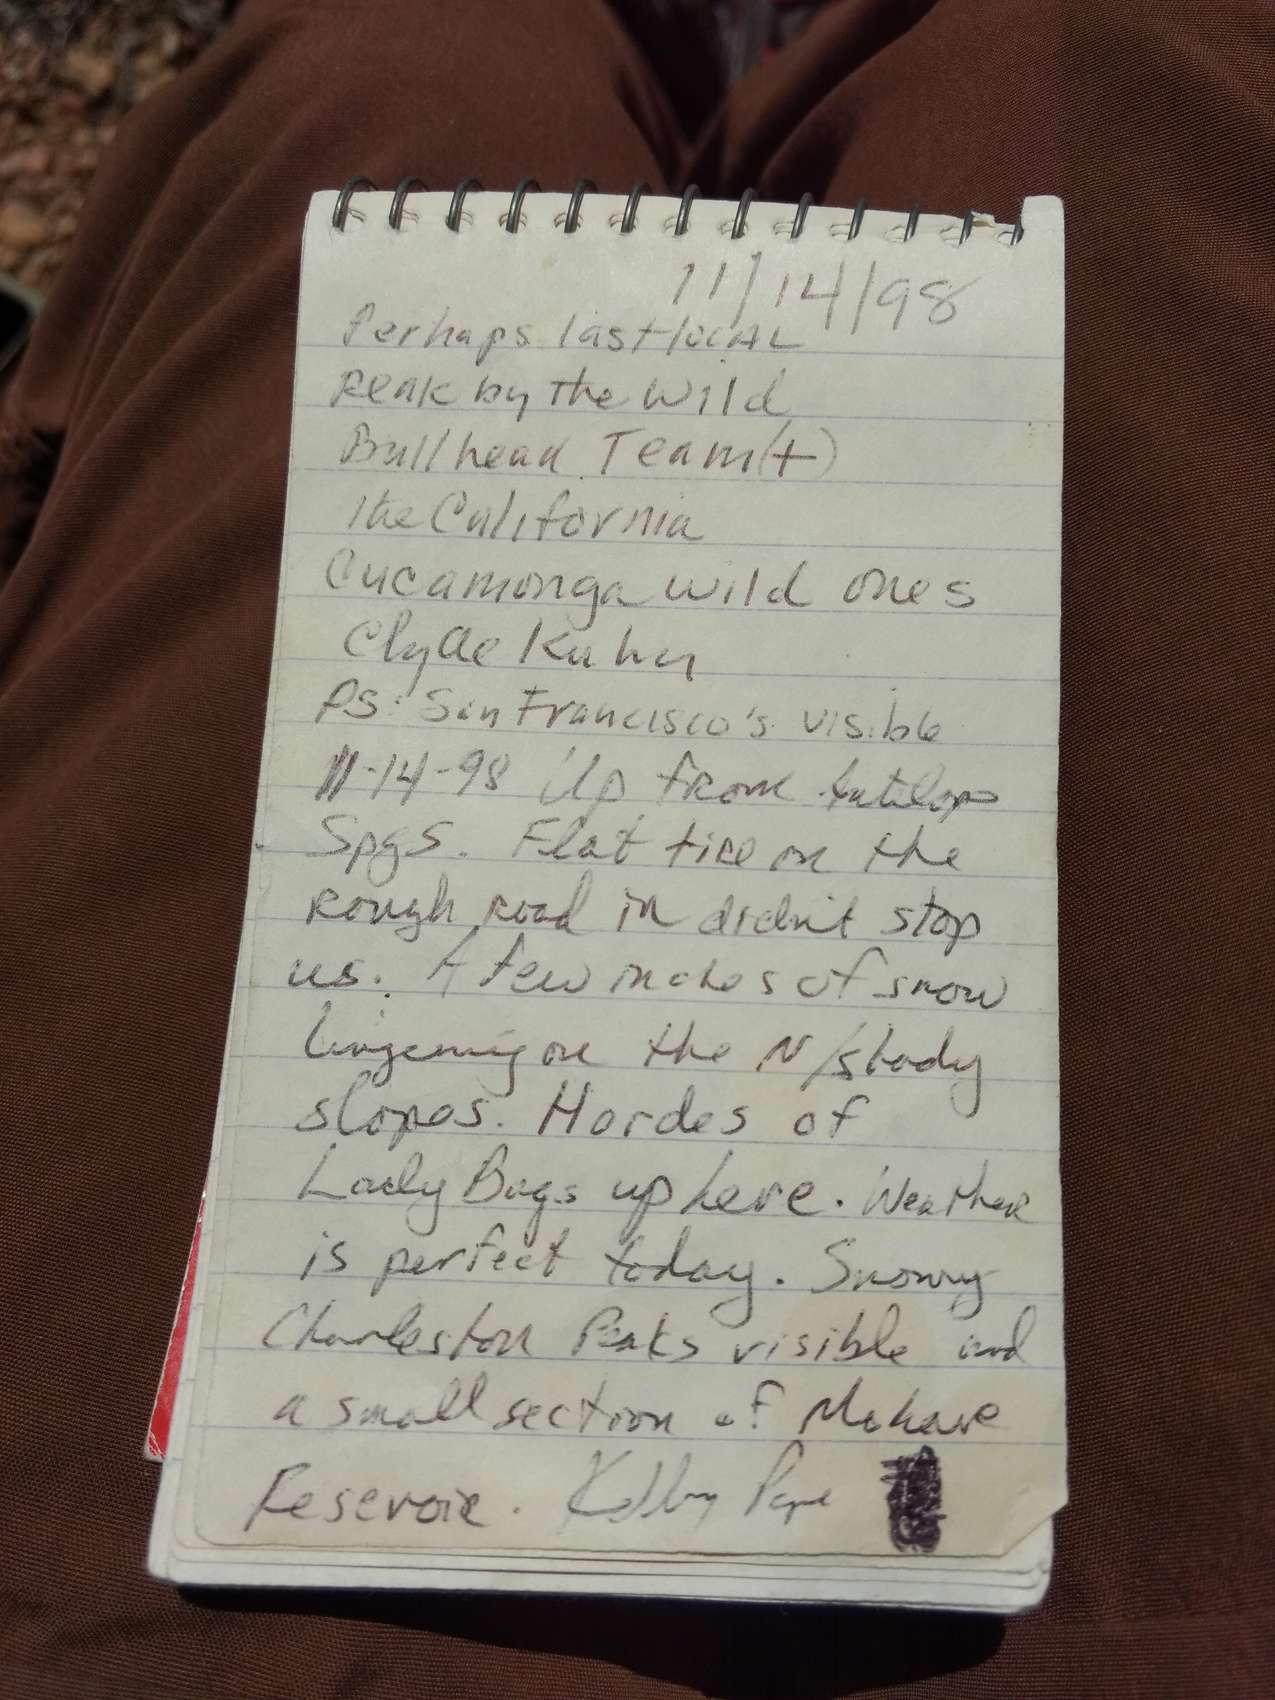 11/14/98
Perhaps last local
peak by the Wild
Bullhead Team (+)
the California
Cucamonga wild ones
Clyde Kuhn
PS: San Francisco's visible
11-14-98 Up from Antelope
Spgs. Flat tire on the
rough road in didn't stop
us. A few inches of snow
lingering on the N/shady
slopes. Hordes of
Lady Bugs up here. Weather
is perfect today. Snowy
Charleston Peaks visible and
a small section of Mohave
Reservoir.